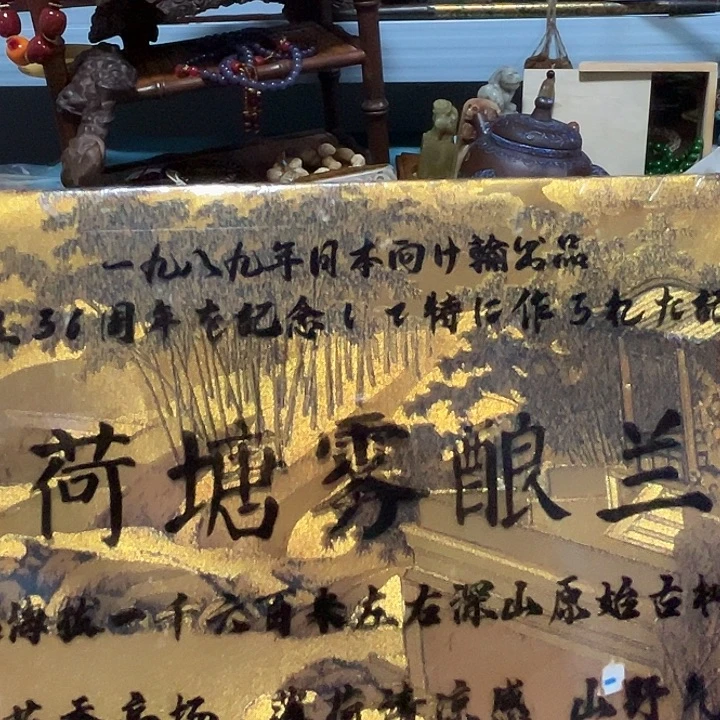 一九八九年日本向け輸出品
36周年を記念して特に作られた記
荷塘雾酿兰
海拔一千六百米左右深山原始古树
高扬 荷清凉感 山野